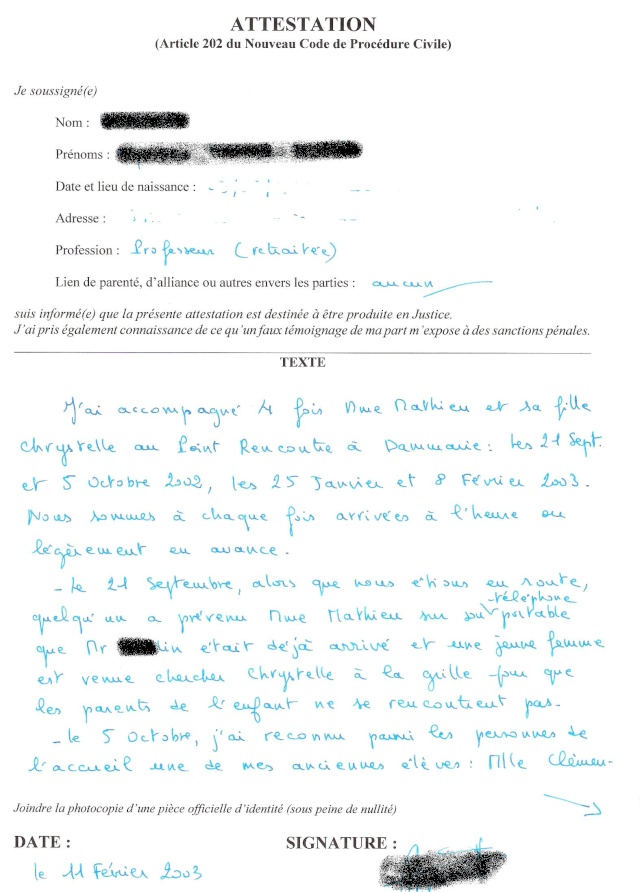 ATTESTATION
(Article 202 du Nouveau Code de Procédure Civile)
Je soussigné(e)
Nom :
Prénoms :
Date et lieu de naissance :
Adresse :
Profession : Professeur (retraitée)
Lien de parenté, d'alliance ou autres envers les parties : aucun
suis informé(e) que la présente attestation est destinée à être produite en Justice.
J'ai pris également connaissance de ce qu'un faux témoignage de ma part m'expose à des sanctions pénales.
TEXTE
J'ai accompagné 4 fois Mme Mathieu et sa fille
Chrystelle au Point Rencontre à Dammarie : les 21 Sept.
et 5 Octobre 2002, les 25 Janvier et 8 Février 2003.
Nous sommes à chaque fois arrivées à l'heure ou
légèrement en avance.
- Le 21 Septembre, alors que nous étions en route,
quelqu'un a prévenu Mme Mathieu sur son téléphone portable
que Mr lin était déjà arrivé et une jeune femme
est venue chercher Chrystelle à la grille pour que
les parents de l'enfant ne se rencontrent pas.
- Le 5 Octobre, j'ai reconnu parmi les personnes de
l'accueil une de mes anciennes élèves : Mlle Clémen-
Joindre la photocopie d'une pièce officielle d'identité (sous peine de nullité)
DATE : SIGNATURE :
le 11 Février 2003